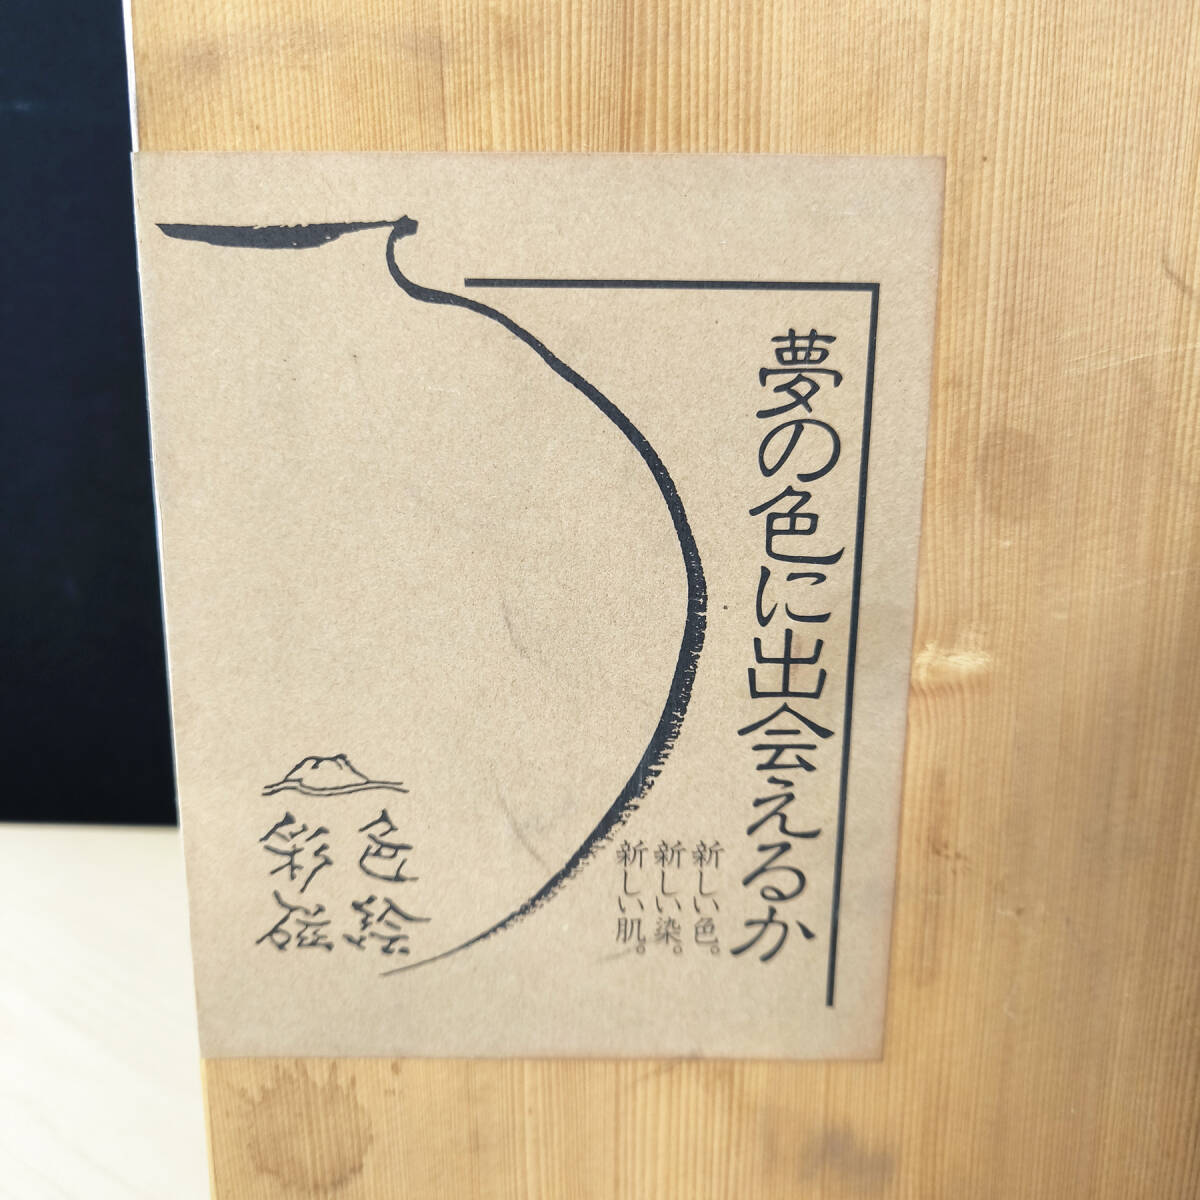 夢の色に出会えるか
新しい色。
新しい染。
新しい肌。
色絵
彩磁